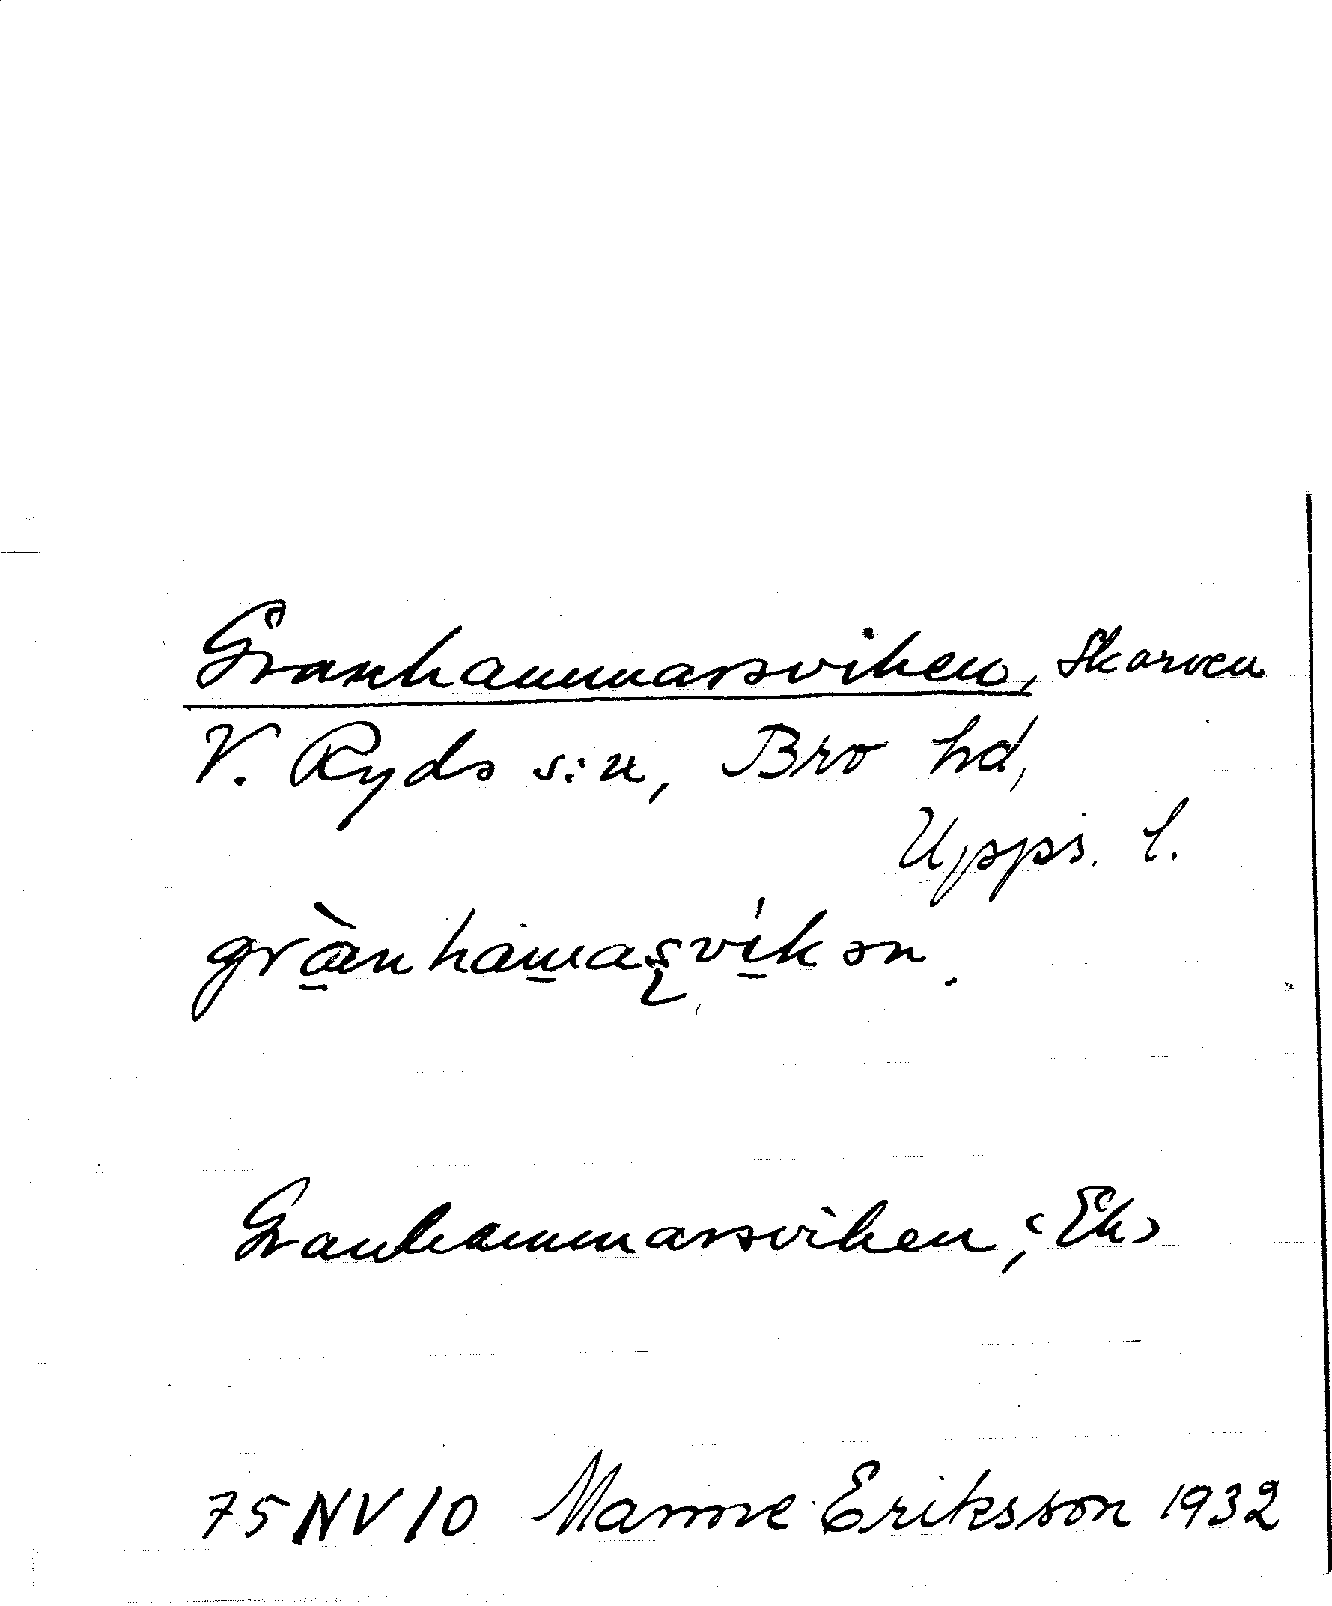 Granhammarsviken, Skarven
V. Ryds sn, Bro hd,
Upps. l.
grànhamaʂvíkən.
Granhammarsviken, Ek.
75 NV 10 Manne Eriksson 1932